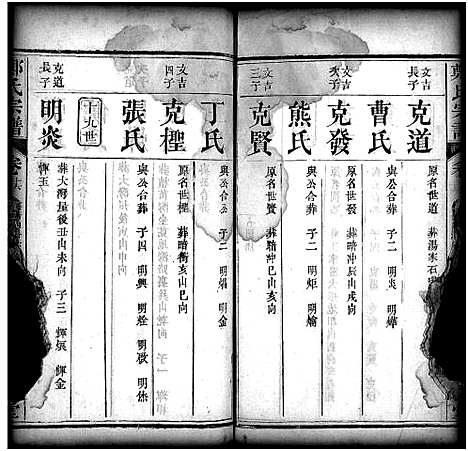 文吉
長子
克道
原名世道
葬湯家石
曹氏
與公合葬 子二 明炎 明燁
文吉
次子
克發
原名世發
葬暗沖辰山戌向
熊氏
與公合葬 子二 明炬 明爚
文吉
三子
克賢
原名世賢
葬暗沖巳山亥向
丁氏
與公合葬 子二 明焜 明金
文吉
四子
克桱
原名世桱
葬暗衝亥山巳向
張氏
與公合葬 子四 明興 明烇 明啟 明傑
十九世
克道
長子
明炎
葬大灣屋後丑山未向 子三 輝煐 輝金
輝玉
鄭氏宗譜